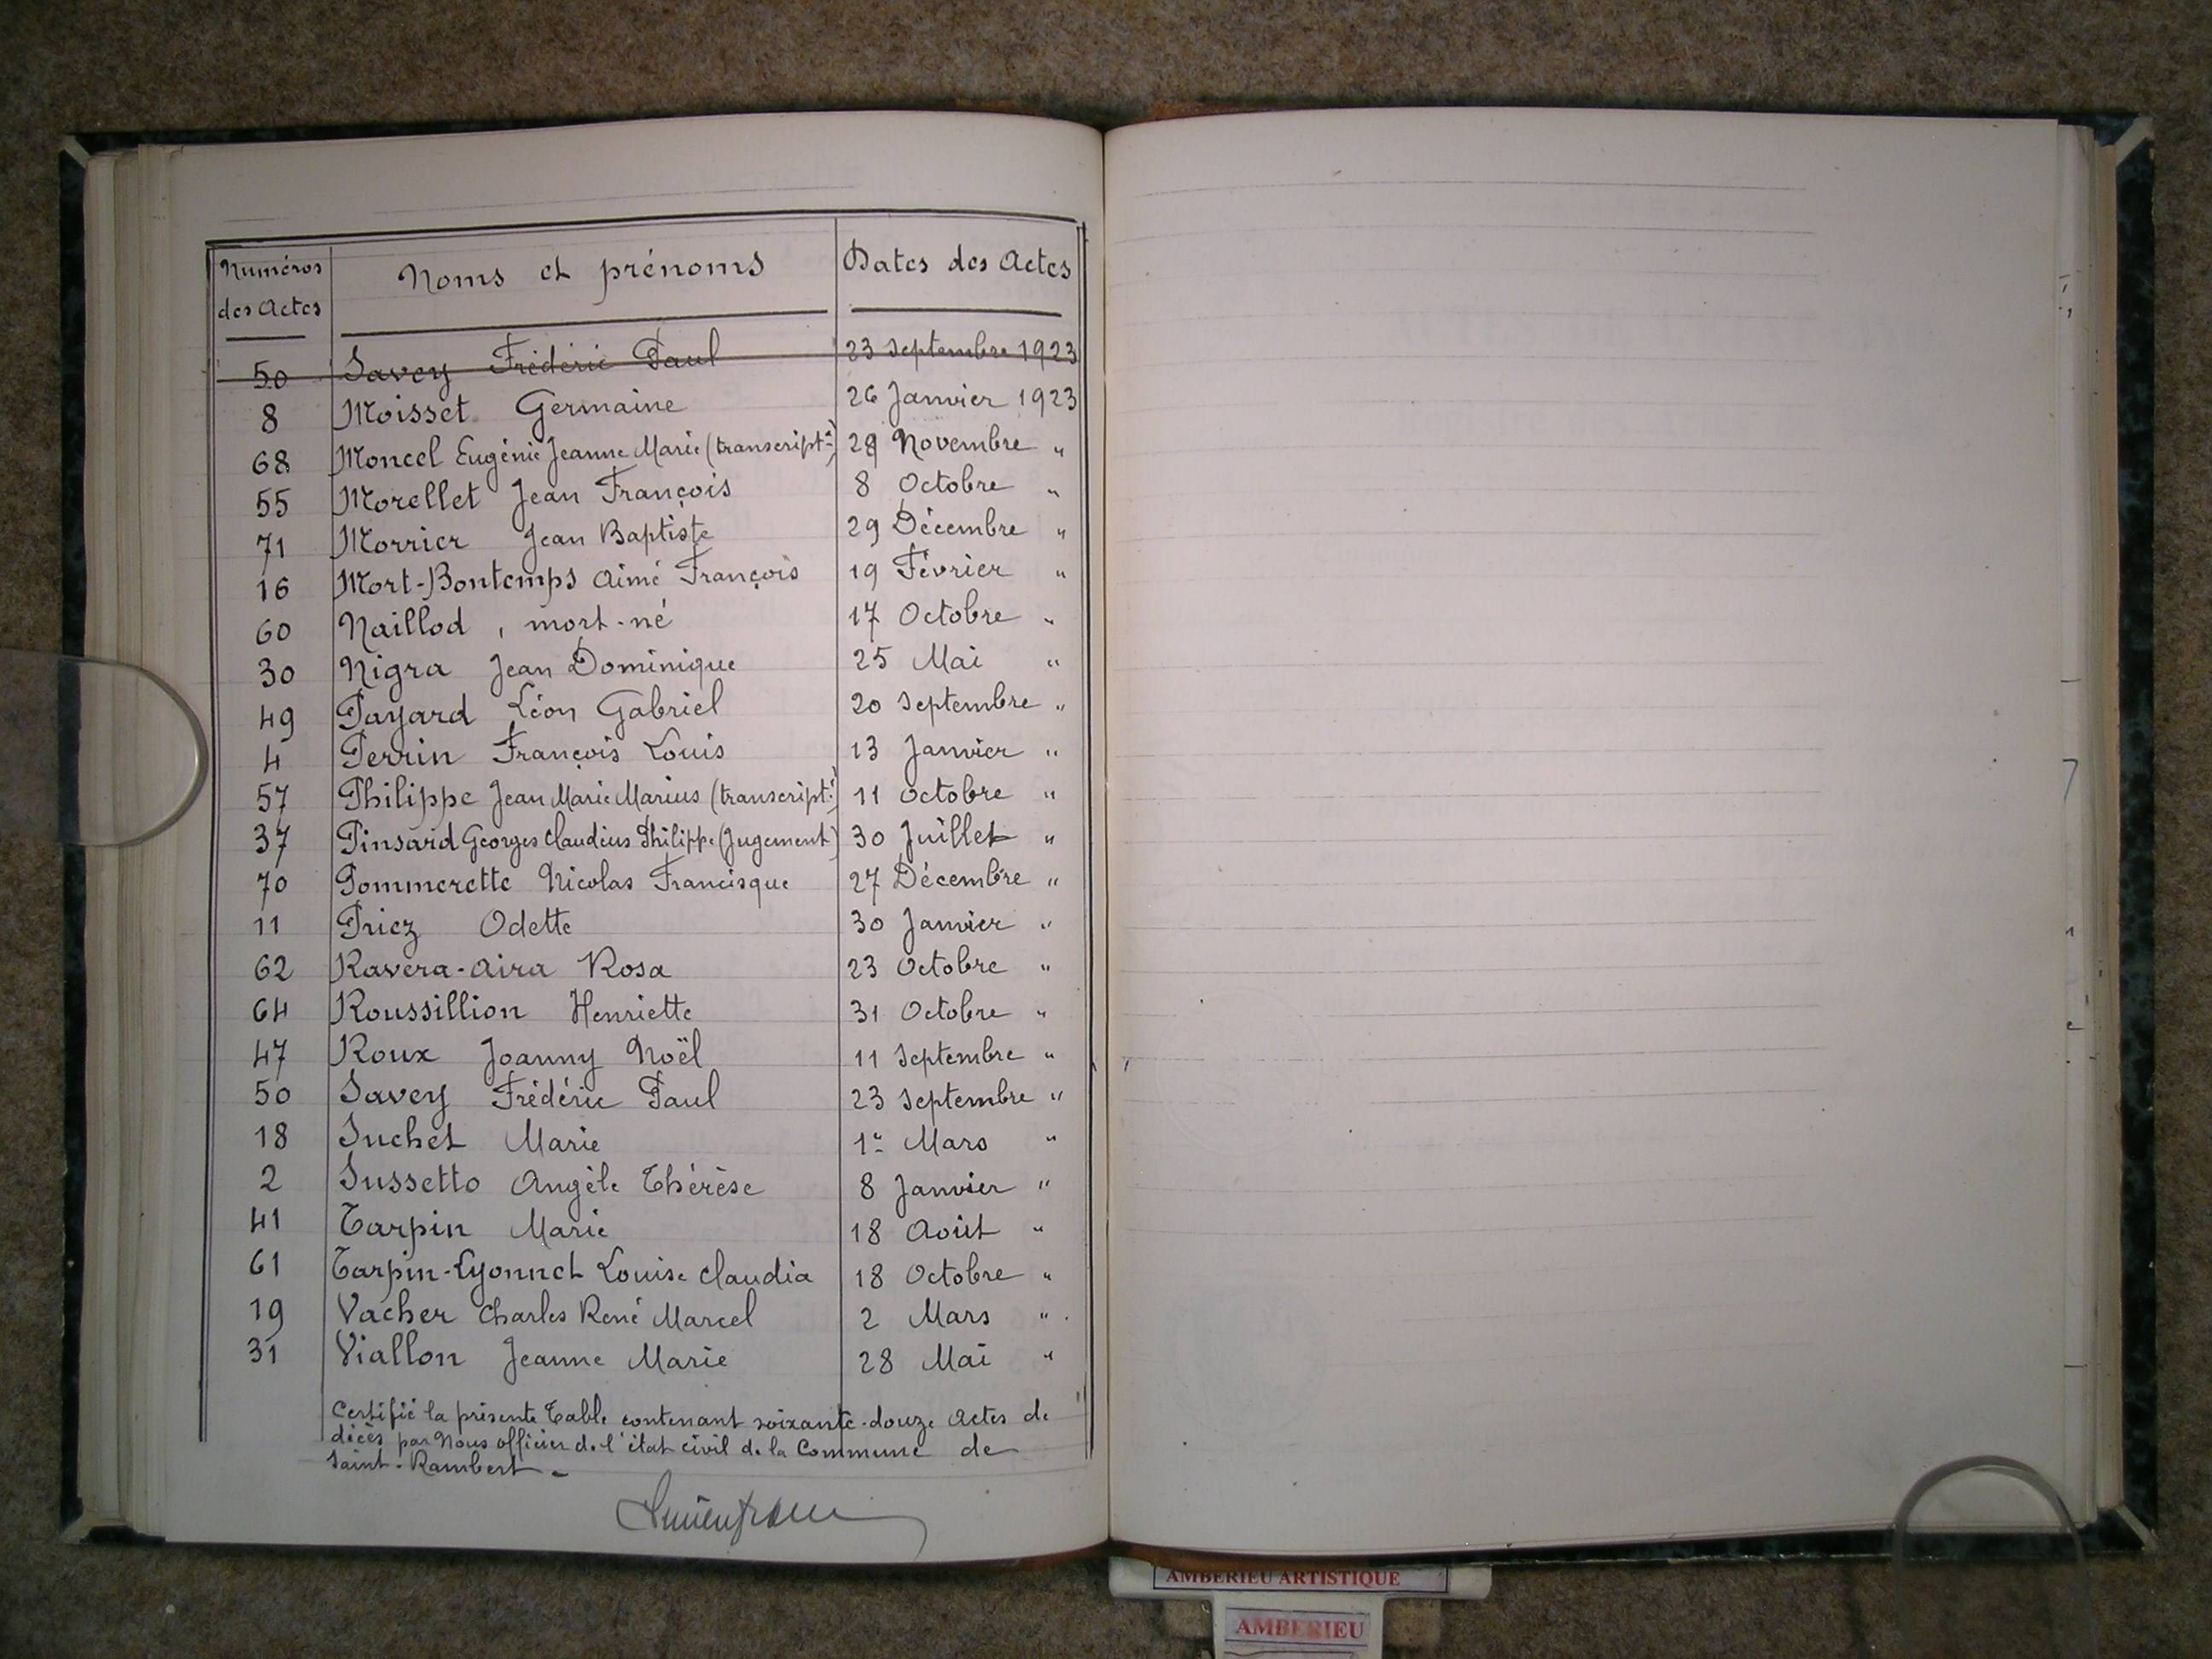 Numéros des Actes Noms et prénoms Dates des Actes
50 Savey Frédéric Paul 23 Septembre 1923
8 Moisset Germaine 26 Janvier 1923
68 Moncel Eugénie Jeanne Marie (transcript.n) 29 Novembre "
55 Morellet Jean François 8 Octobre "
71 Morrier Jean Baptiste 29 Décembre "
16 Mort-Bontemps Aimé François 19 Février "
60 Naillod, mort-né 17 Octobre "
30 Nigra Jean Dominique 25 Mai "
49 Payard Léon Gabriel 20 Septembre "
4 Perrin François Louis 13 Janvier "
57 Philippe Jean Marie Marius (transcript.n) 11 Octobre "
37 Pinsard Georges Claudius Philippe (Jugement) 30 Juillet "
70 Pommerette Nicolas Francisque 27 Décembre "
11 Priez Odette 30 Janvier "
62 Ravera-Aira Rosa 23 Octobre "
64 Roussillion Henriette 31 Octobre "
47 Roux Joanny Noël 11 Septembre "
50 Savey Frédéric Paul 23 Septembre "
18 Suchet Marie 1er Mars "
2 Sussetto Angèle Thérèse 8 Janvier "
41 Tarpin Marie 18 Août "
61 Tarpin-Lyonnet Louise Claudia 18 Octobre "
19 Vacher Charles René Marcel 2 Mars "
31 Viallon Jeanne Marie 28 Mai "
Certifié la présente Table contenant soixante-douze Actes de
décès par Nous officier de l'état civil de la Commune de
Saint-Rambert.-
AMBERIEU ARTISTIQUE
AMBERIEU